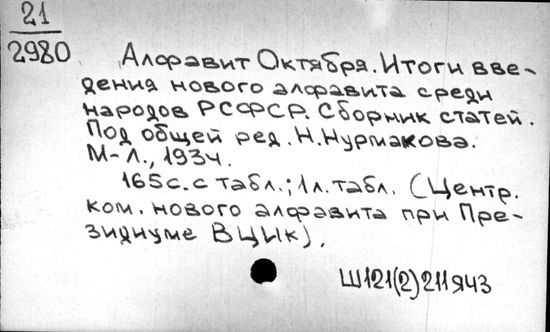 21
2980
Алфавит Октября. Итоги вве-
дения нового алфавита среди
народов РСФСР. Сборник статей.
Под общей ред. Н. Нурмакова.
М-Л., 1934.
165с. с табл.; 1л. табл. (Центр.
ком. нового алфавита при Пре-
зидиуме ВЦИК).
Ш121(2)211я43